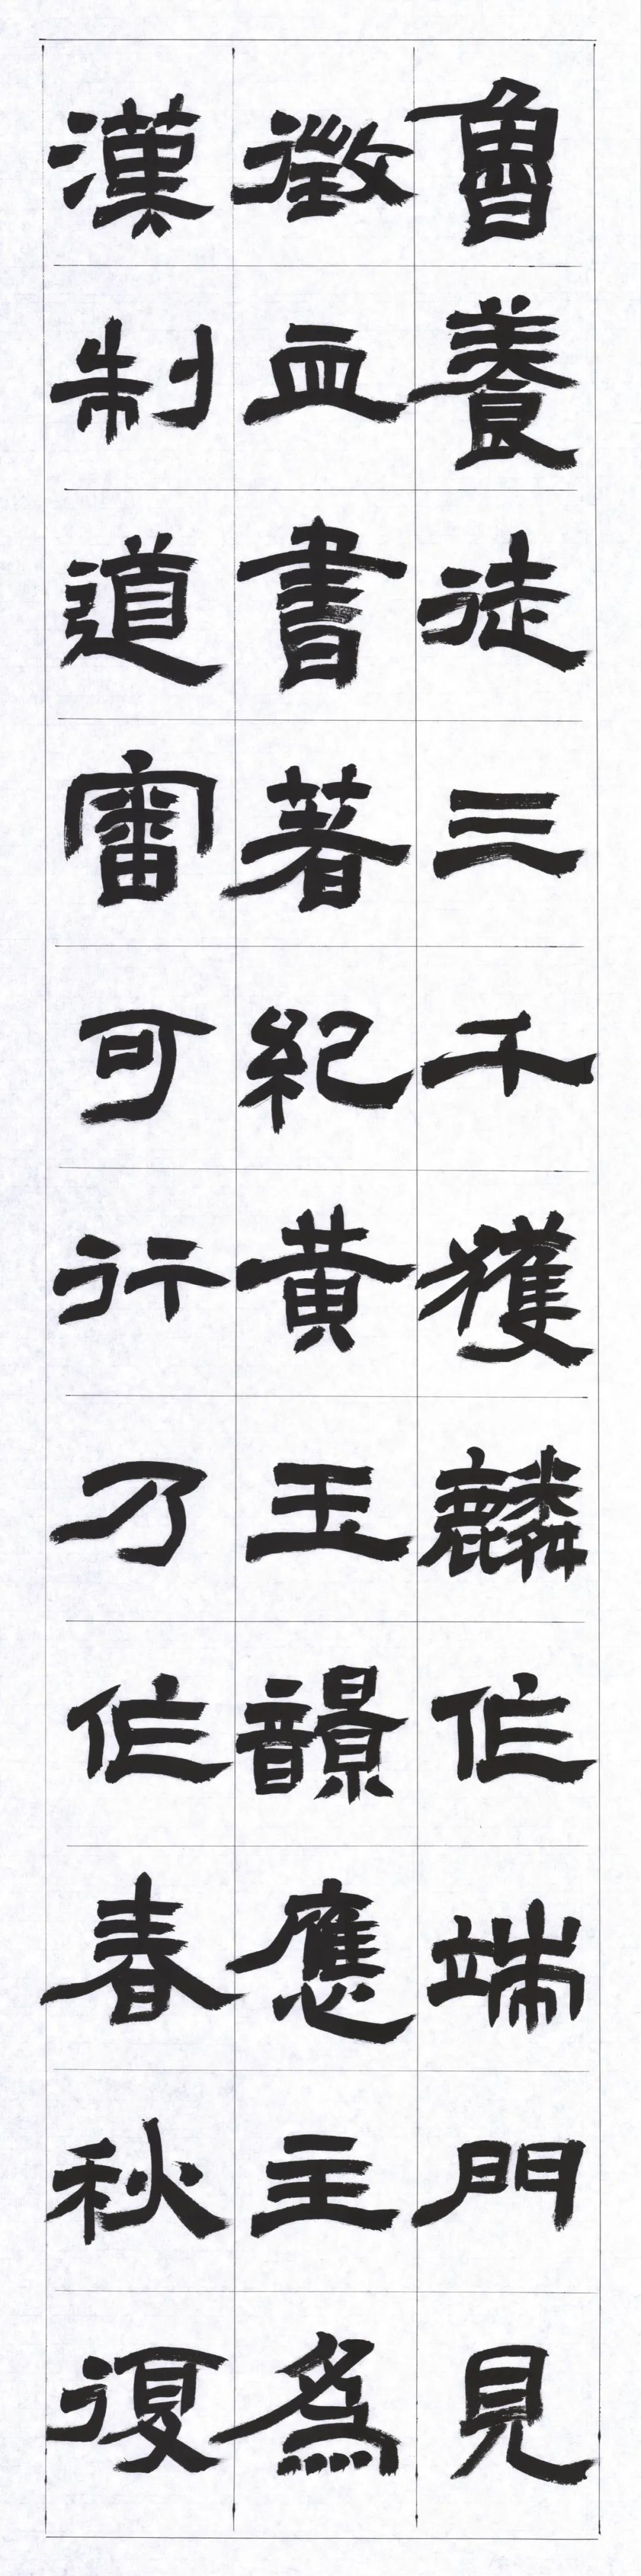 魯養徒三千獲麟作端門見
徵血書著紀黃玉響應主為
漢制道審可行乃作春秋復